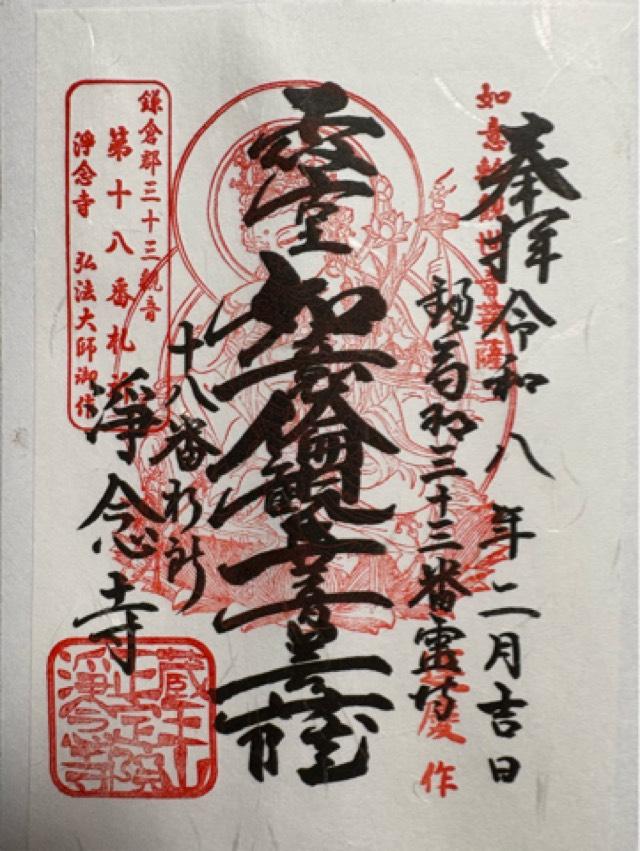 奉拝 令和八年二月吉日
如意輪観世音菩薩 運慶作
鎌倉郡三十三番霊場
霊堂 如意輪観世音菩薩
十八番札所
淨念寺
鎌倉郡三十三観音
第十八番札所
淨念寺 弘法大師御作